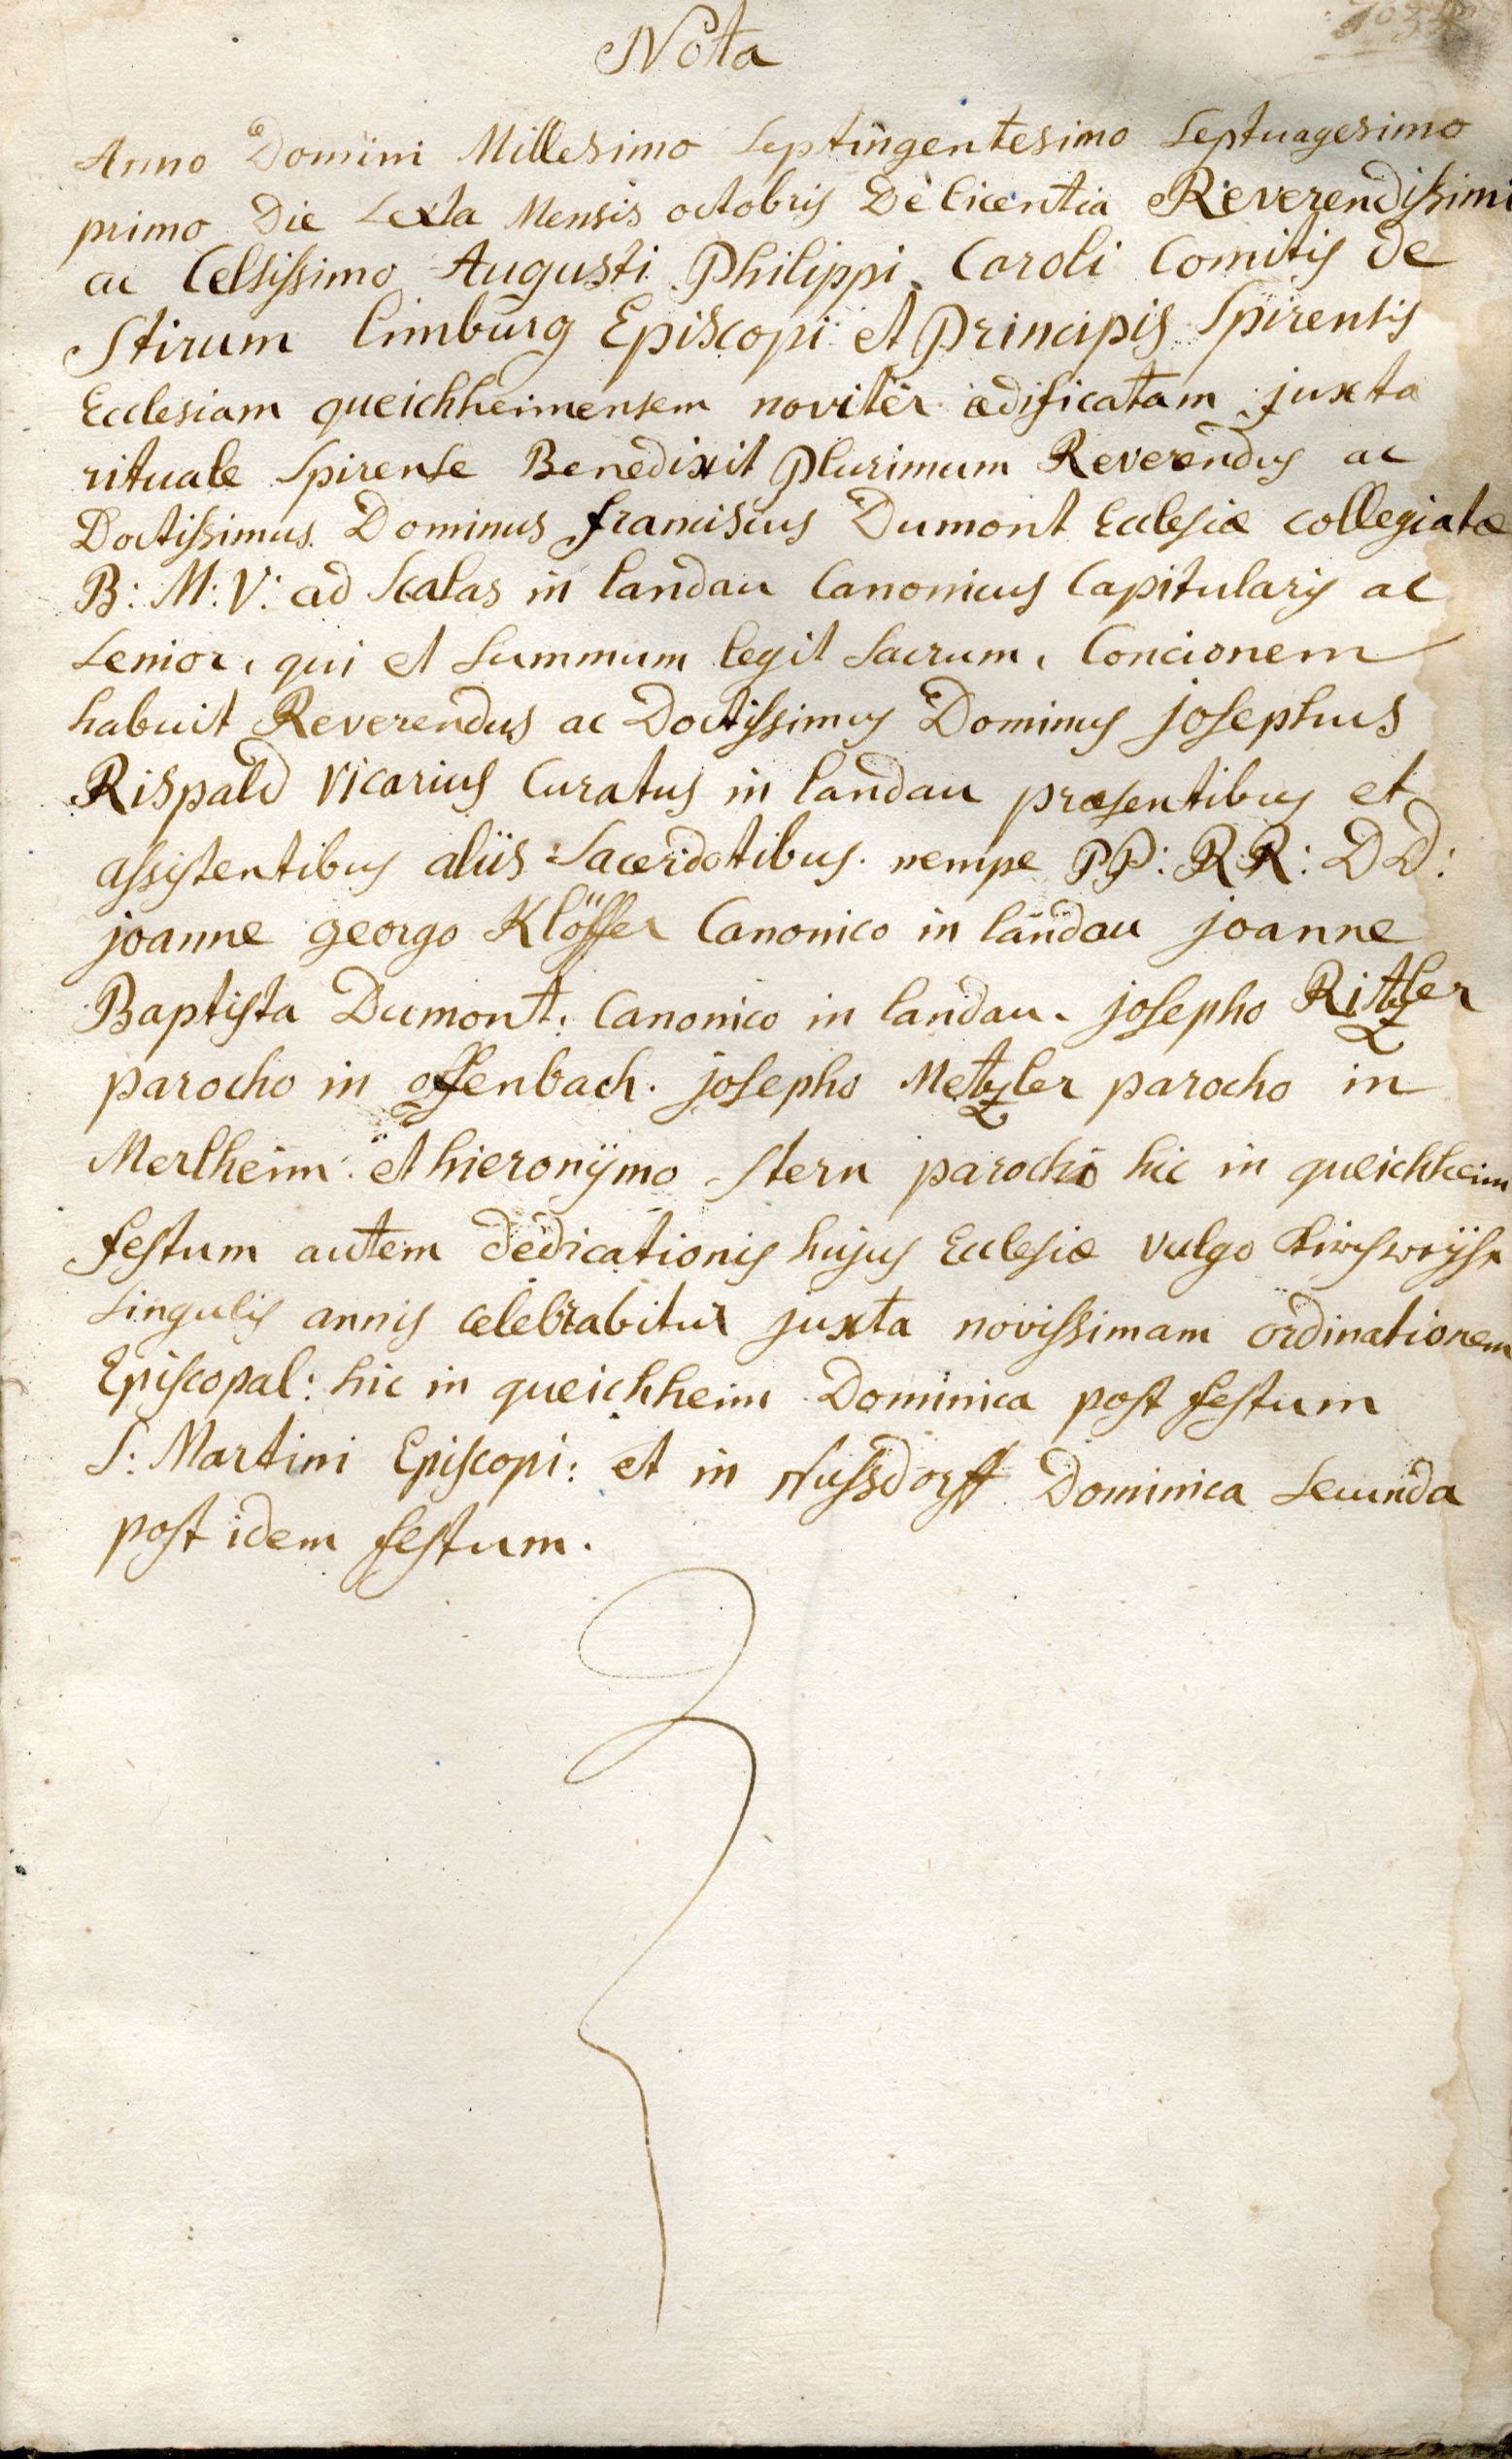 Nota
Anno Domini Millesimo Septingentesimo Septuagesimo
primo Die Sexta Mensis octobris De licentia Reverendissimi
ac Celsissimo Augusti Philippi Caroli Comitis de
Stirum limburg Episcopi et Principis Spirensis
Ecclesiam queichheimensem noviter ædificatam juxta
rituale Spirense Benedixit Plurimum Reverendus ac
Doctissimus Dominus franciscus Dumont Ecclesiæ collegiatæ
B: M: V: ad Scalas in landau Canonicus Capitularis ac
Senior, qui et Summum legit Sacrum, Concionem
habuit Reverendus ac Doctissimus Dominus josephus
Rispald Vicarius Curatus in landau præsentibus et
assistentibus aliis Sacerdotibus. nempe PP: RR: DD:
joanne georgo Klöffer Canonico in landau joanne
Baptista Dumont, Canonico in landau. josepho Ritzler
parocho in offenbach. josepho Metzler parocho in
Merlheim. et hieronÿmo Stern parocho hic in queichheim
festum autem dedicationis hujus Ecclesiæ vulgo
Singulis annis celebrabitur juxta novissimam ordinationem
Episcopal: hic in queichheim Dominica post festum
S: Martini Episcopi: et in Nussdorff Dominica Secunda
post idem festum.